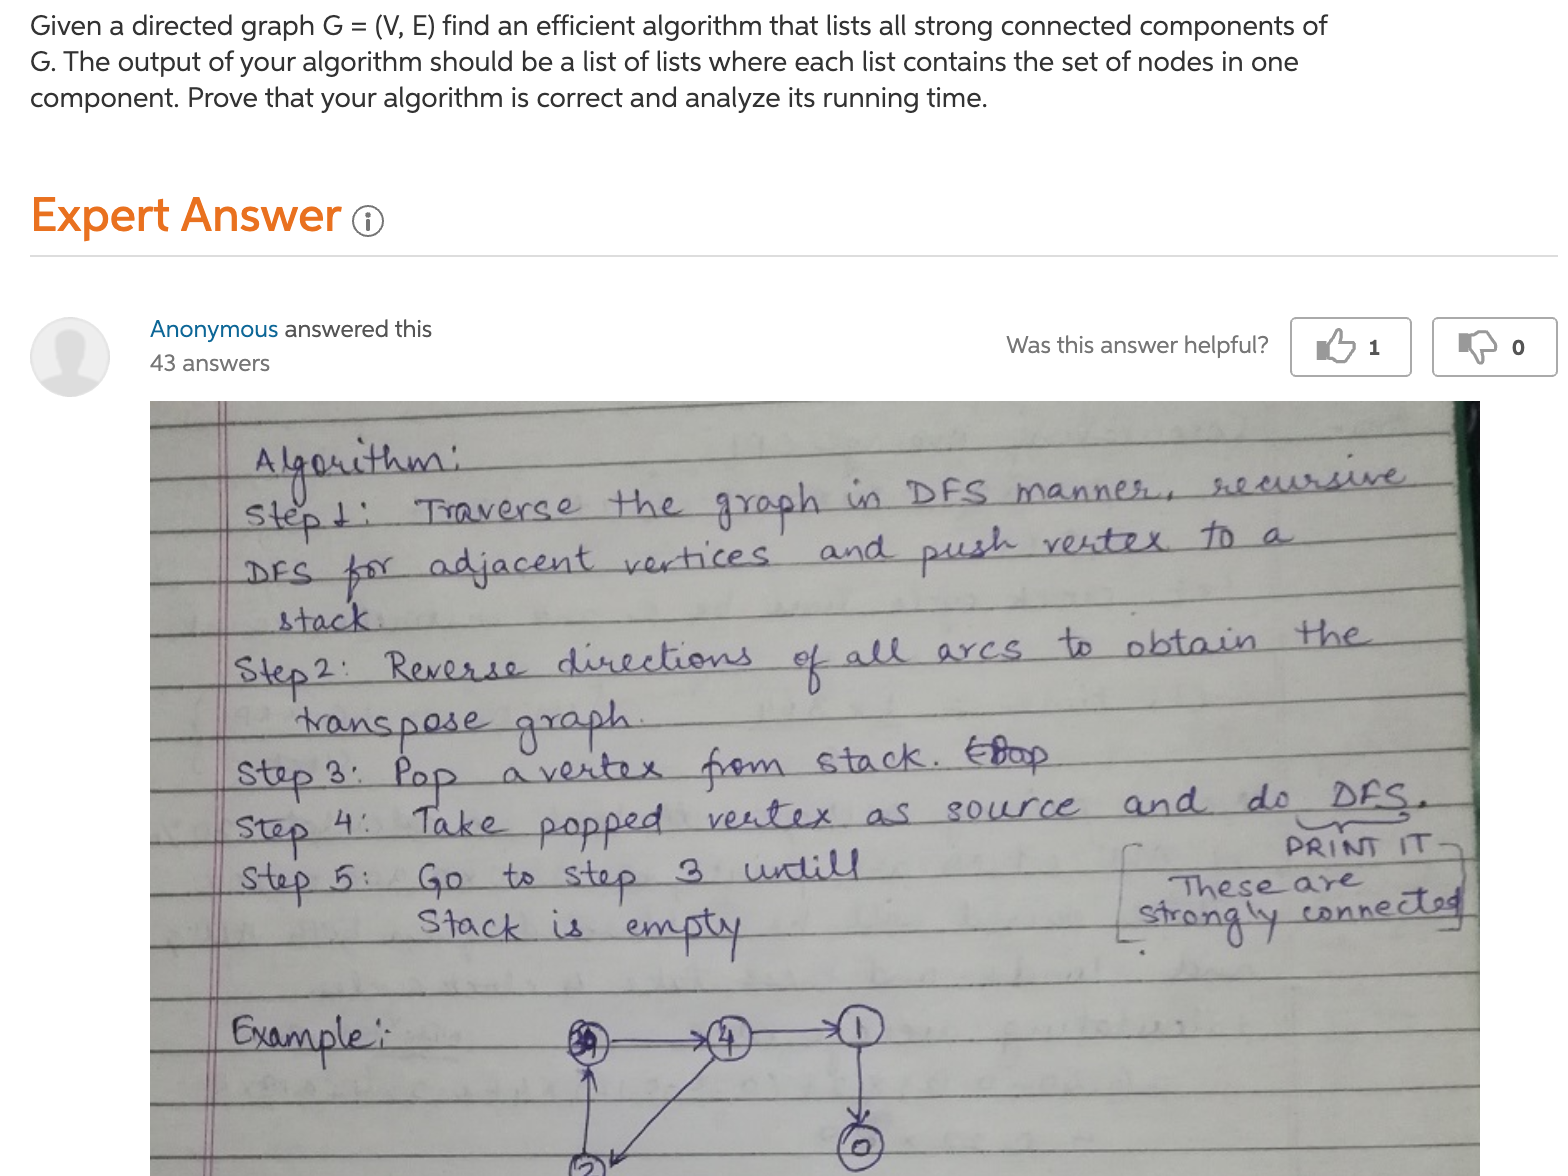 Given a directed graph G = (V, E) find an efficient algorithm that lists all strong connected components of
G. The output of your algorithm should be a list of lists where each list contains the set of nodes in one
component. Prove that your algorithm is correct and analyze its running time.
Expert Answer
Anonymous answered this
43 answers
Was this answer helpful?
1
0
Algorithm:
Step 1: Traverse the graph in DFS manner, recursive
DFS for adjacent vertices and push vertex to a
stack.
Step 2: Reverse directions of all arcs to obtain the
transpose graph.
Step 3: Pop a vertex from stack.
Step 4: Take popped vertex as source and do DFS.
PRINT IT
Step 5: Go to step 3 untill
Stack is empty
These are
strongly connected
Example:-
4
1
2
0